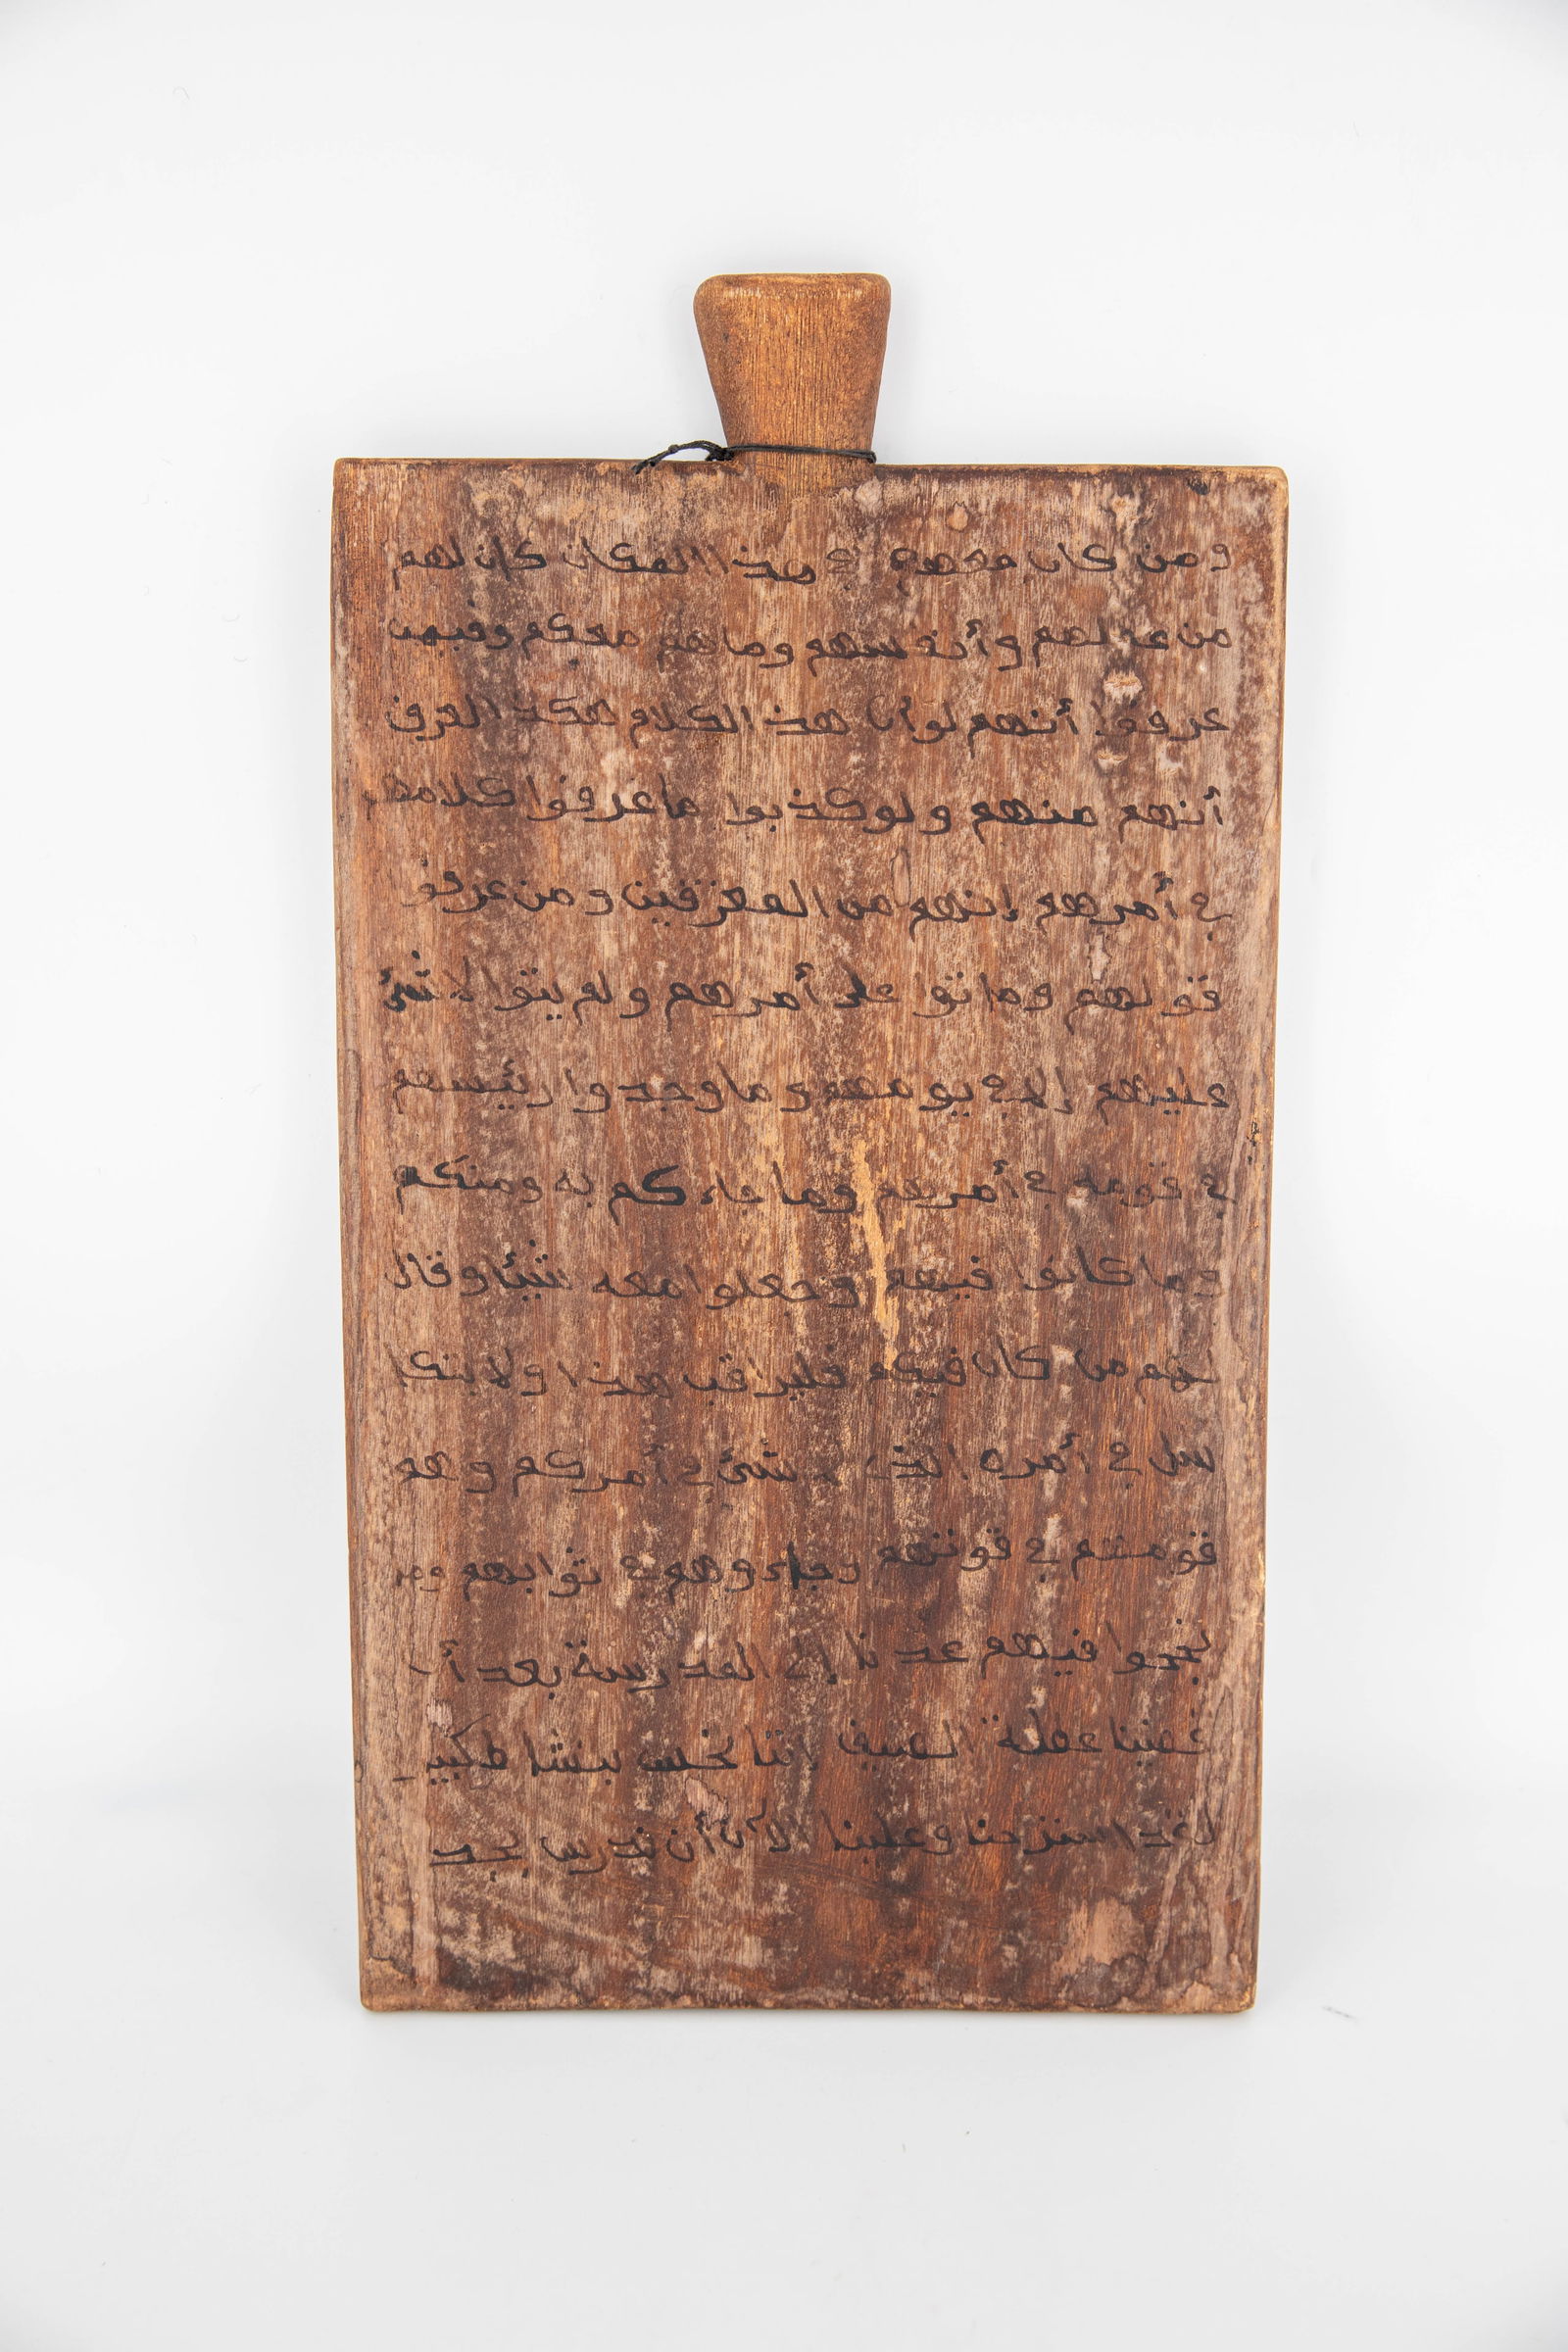 ومن كان معهم في هذا المكان كان لهم
من عد لهم وأنه سهم وما هم معكم وفيهن
عرفوا أنهم لوأن هذ الكلام هكذ العرف
أنهم منهم ولو كذبوا ما عرفوا كلامهم
في أمرهم إنهم من المعزقين ومن عرفو
قولهم وما تو على أمرهم ولم يتو الا شئ
عليهم إلى يومهم وما وجدوا رئيسهم
في قومه في أمرهم وما جاء كم به ومنكم
وما كانوا فيهم وجعلوا معه شيئا وقال
لهم من كان فيكم فليراقب هذا ولا يتكا
سل في أمره شئ في أمركم وهو
قومتم في قوتهم وجاء وهم في ثوابهم
نجحوا فيهم عدنا إلى المدرسة بعد أن
عطلة الصيف إننا نحس بنشاط كبير
لقد استرحنا وعلينا الآن أن ندرس بجد